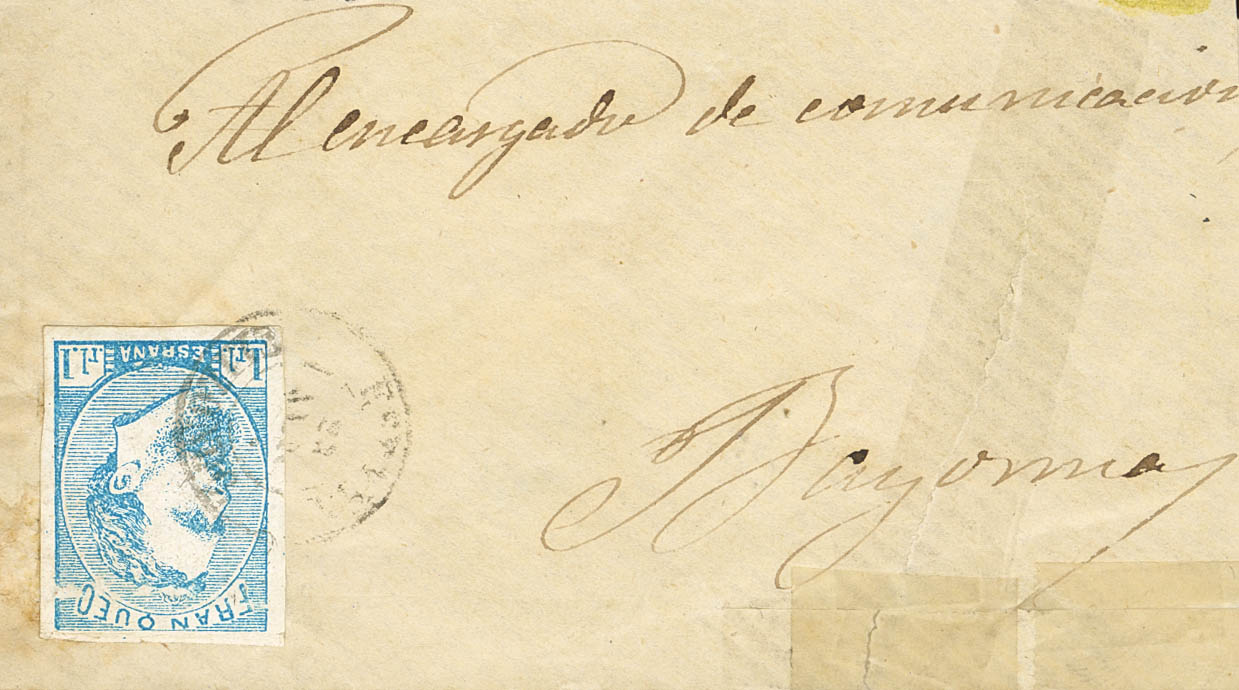 Al encargado de comunicacion
Bayonna
1 rl. ESPAÑA 1 rl.
FRANQUEO